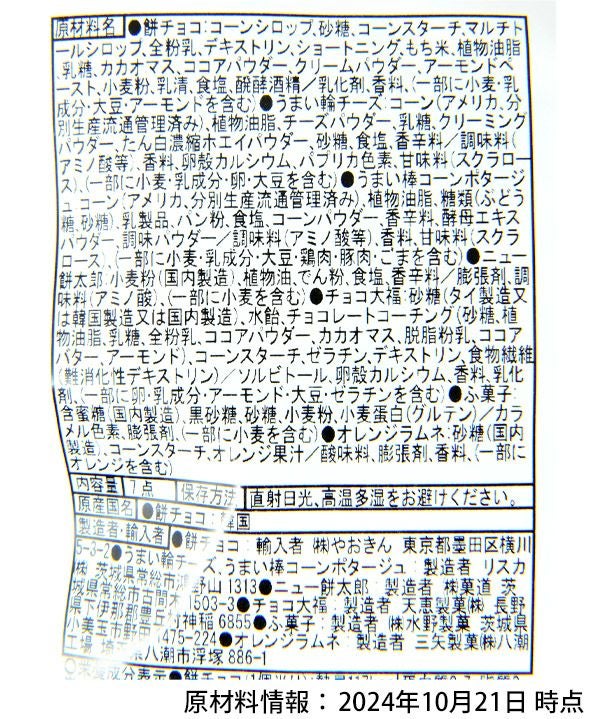 原材料名 ●餅チョコ:コーンシロップ、砂糖、コーンスターチ、マルチト
ールシロップ、全粉乳、デキストリン、ショートニング、もち米、植物油脂
、乳糖、カカオマス、ココアパウダー、クリームパウダー、アーモンドペ
ースト、小麦粉、乳清、食塩、醗酵酒精/乳化剤、香料、(一部に小麦・乳
成分・大豆・アーモンドを含む)●うまい輪チーズ:コーン(アメリカ、分
別生産流通管理済み)、植物油脂、チーズパウダー、乳糖、クリーミング
パウダー、たん白濃縮ホエイパウダー、砂糖、食塩、香辛料/調味料(
アミノ酸等)、香料、卵殻カルシウム、パプリカ色素、甘味料(スクラロー
ス)、(一部に小麦・乳成分・卵・大豆を含む)●うまい棒コーンポタージ
ュ:コーン(アメリカ、分別生産流通管理済み)、植物油脂、糖類(ぶどう
糖、砂糖)、乳製品、パン粉、食塩、コーンパウダー、香辛料、酵母エキス
パウダー、調味パウダー/調味料(アミノ酸等)、香料、甘味料(スクラ
ロース)、(一部に小麦・乳成分・大豆・鶏肉・豚肉・ごまを含む)●ニュー
餅太郎:小麦粉(国内製造)、植物油、でん粉、食塩、香辛料/膨張剤、調
味料(アミノ酸)、(一部に小麦を含む)●チョコ大福:砂糖(タイ製造又
は韓国製造又は国内製造)、水飴、チョコレートコーチング(砂糖、植
物油脂、乳糖、全粉乳、ココアパウダー、カカオマス、脱脂粉乳、ココア
バター、アーモンド)、コーンスターチ、ゼラチン、デキストリン、食物繊維
(難消化性デキストリン)/ソルビトール、卵殻カルシウム、香料、乳化
剤、(一部に卵・乳成分・アーモンド・大豆・ゼラチンを含む)●ふ菓子:
含蜜糖(国内製造)、黒砂糖、砂糖、小麦粉、小麦蛋白(グルテン)/カラ
メル色素、膨張剤、(一部に小麦を含む)●オレンジラムネ:砂糖(国内
製造)、コーンスターチ、オレンジ果汁/酸味料、膨張剤、香料、(一部に
オレンジを含む)
内容量 7点 保存方法 直射日光、高温多湿をお避けください。
原産国名 ●餅チョコ:韓国
製造者・輸入者 ●餅チョコ:輸入者 ㈱やおきん 東京都墨田区横川
5-3-2●うまい輪チーズ、うまい棒コーンポタージュ:製造者 リスカ
㈱ 茨城県常総市 野山1313●ニュー餅太郎:製造者 ㈱菓道 茨
城県常総市古間木1503-3●チョコ大福:製造者 天恵製菓㈱ 長野
県下伊那郡豊丘村神稲6855●ふ菓子:製造者 ㈱水野製菓 茨城県
小美玉市野田1475-224●オレンジラムネ:製造者 三矢製菓㈱八潮
工場 埼玉県八潮市浮塚886-1
原材料情報:2024年10月21日 時点